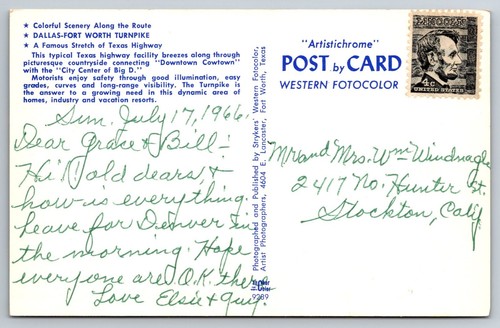 ★ Colorful Scenery Along the Route
★ DALLAS-FORT WORTH TURNPIKE
★ A Famous Stretch of Texas Highway
This typical Texas highway facility breezes along through
picturesque countryside connecting "Downtown Cowtown"
with the "City Center of Big D."
Motorists enjoy safety through good illumination, easy
grades, curves and long-range visibility. The Turnpike is
the answer to a growing need in this dynamic area of
homes, industry and vacation resorts.
Sun. July 17, 1966.
Dear Grace & Bill:-
Hi! old dears, &
how is everything.
Leave for Denver in
the morning. Hope
everyone are O.K. there
Love Elsie & Guy.
Photographed and Published by Strykers' Western Fotocolor,
Artist Photographers, 4604 E. Lancaster, Fort Worth, Texas
9289
"Artistichrome"
POST by CARD
WESTERN FOTOCOLOR
4c
UNITED STATES
Mr and Mrs. Wm Windnagle
2417 No. Hunter St.
Stockton, Calif.